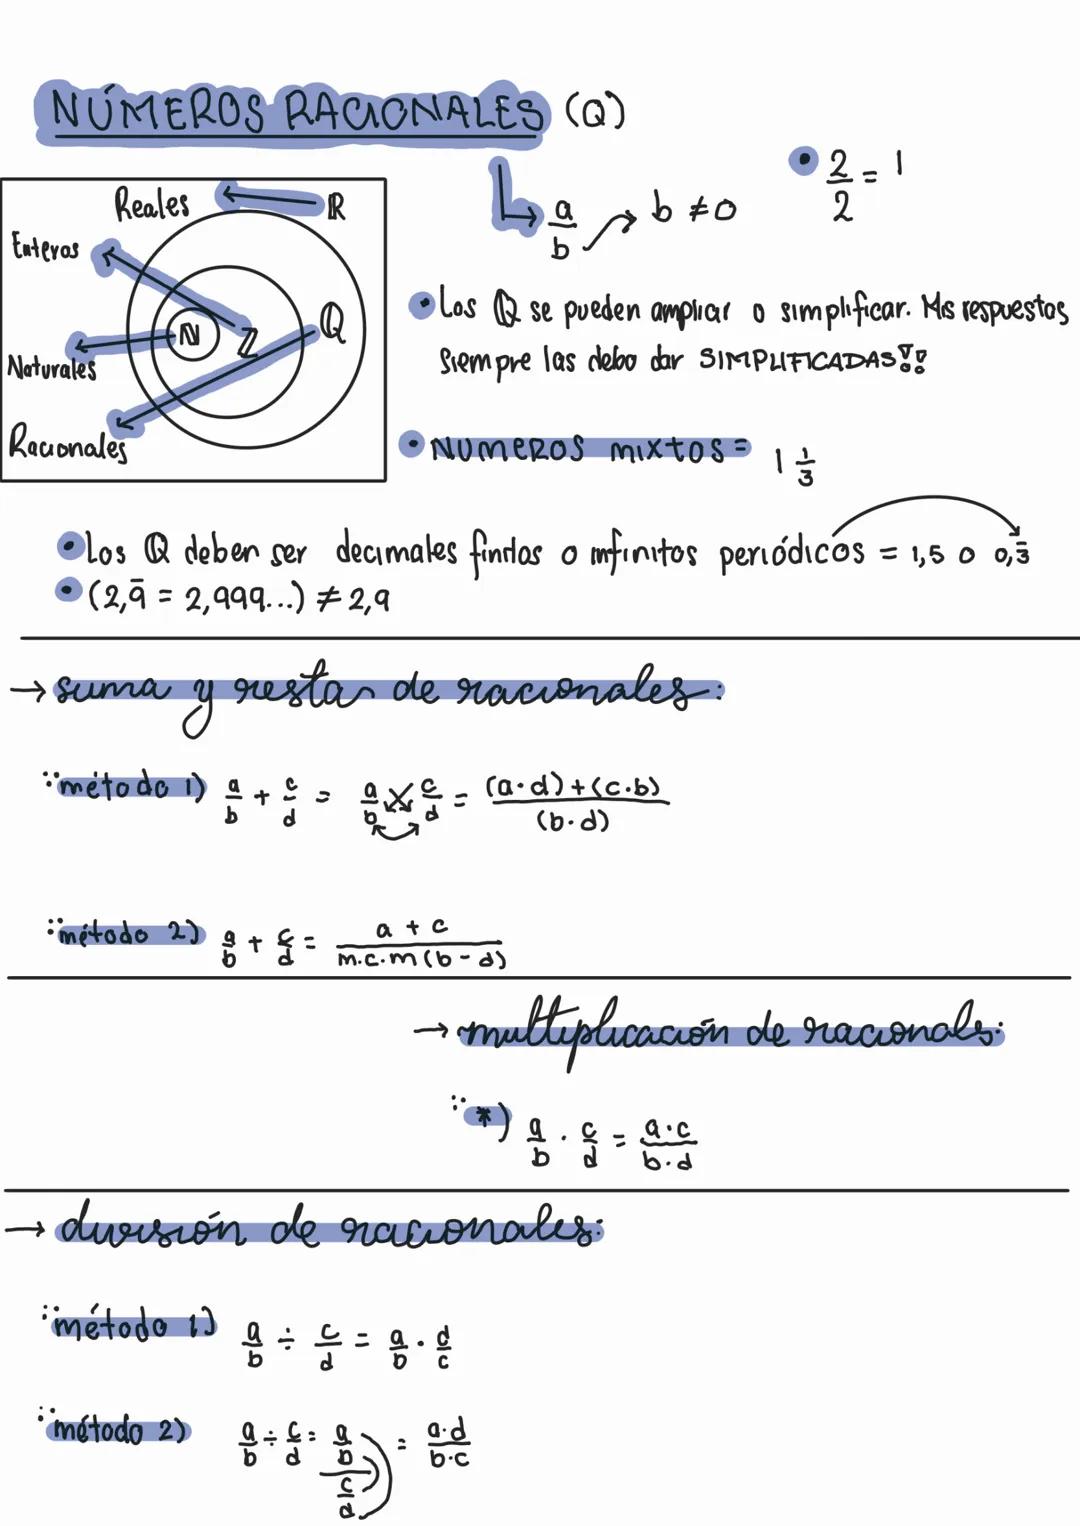 NÚMEROS RACIONALES (Q)
Reales ← ℝ
Enteros
N Z Q
Naturales
Racionales
a/b → b ≠ 0
• 2/2 = 1
• Los Q se pueden ampliar o simplificar. Mis respuestas
siempre las debo dar SIMPLIFICADAS!!
• NUMEROS MIXTOS = 1 1/3
• Los Q deben ser decimales finitos o infinitos periódicos = 1,5 o 0,3̄
• (2,9̄ = 2,999...) ≠ 2,9
→ suma y resta de racionales:
método 1) a/b + c/d = a/b × c/d = (a·d)+(c·b)/(b·d)
método 2) a/b + c/d = a + c/m.c.m(b-d)
→ multiplicación de racionals:
*) a/b · c/d = a·c/b·d
→ división de racionales:
método 1) a/b ÷ c/d = a/b · d/c
método 2) a/b ÷ c/d = a/b / c/d = a·d/b·c